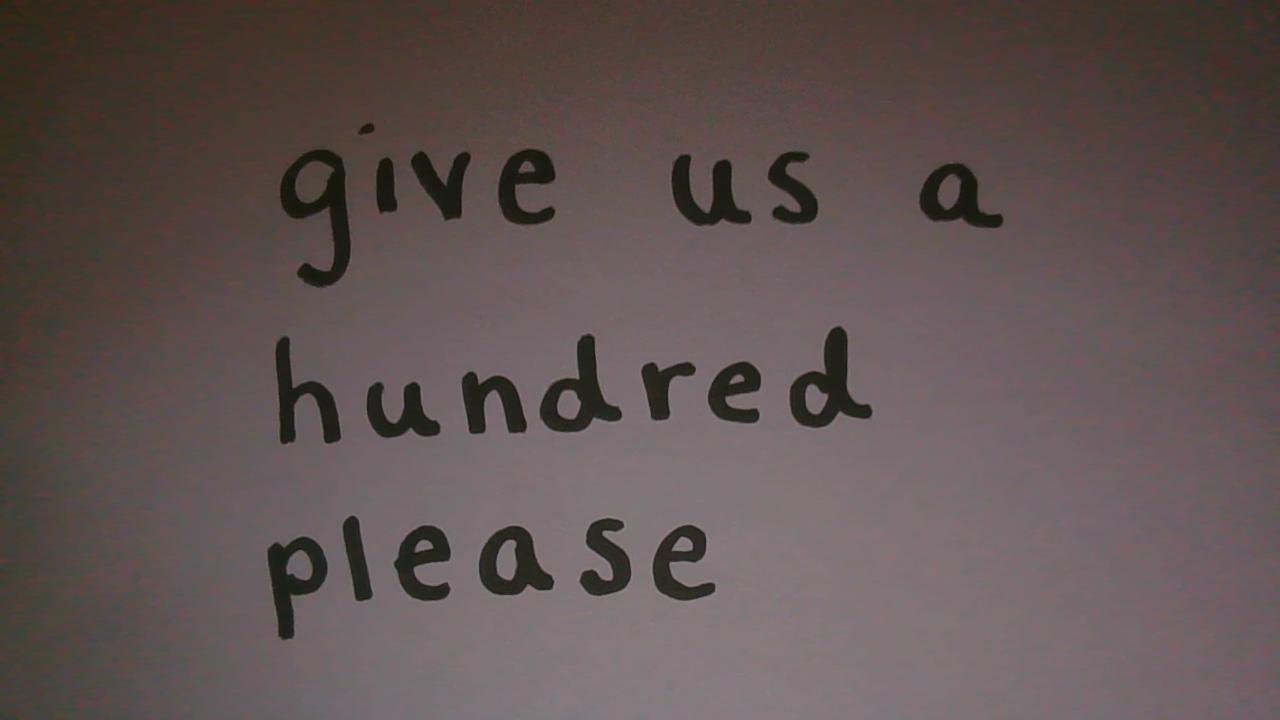 give us a
hundred
please